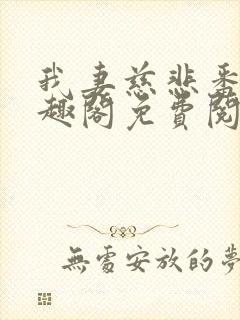 我妻慈悲番
趣阁免費閱
無處安放的夢